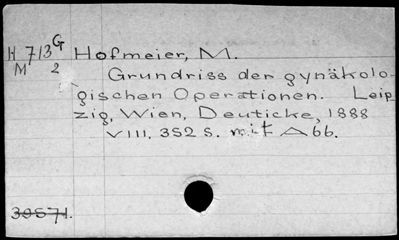 H 713 G Hofmeier, M.
M 2 Grundriss der gynäkolo-
gischen Operationen. Leip-
zig, Wien, Deuticke, 1888
VIII. 352 S. mit Abb.
39571.